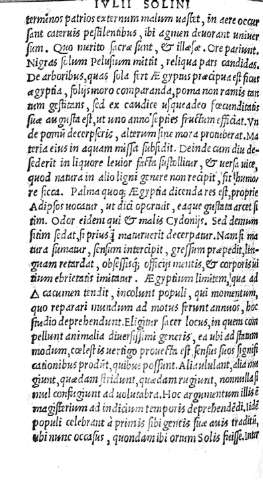 IVLII SOLINI
terminos patrios externum malum uastet, in aere occur
sant cateruis pestilentibus, ibi agmen deuorant uniuer
sum. Quo merito sacræ sunt, & illæsæ. Ore pariunt.
Nigras solum Pelusium mittit, reliqua pars candidas.
De arboribus, quas sola fert Ægyptus præcipua est ficus
ægyptia, folijs moro comparanda, poma non ramis tan
tum gestitans, sed ex caudice usqueadeo fœcunditatis
suæ angusta est, ut uno anno sæpies fructum efficiat. Vn
de pomū decerpseris, alterum sine mora protuberat. Ma
teria eius in aquam missa subsidit. Deinde cum diu de-
sederit in liquore leuior facta sustollitur, & uersa uice,
quod natura in alio ligni genere non recipit, fit humo-
re sicca. Palma quoq; Ægyptia dicenda res est, proprie
Adipsos uocatur, ut dici oportuit, eaque gustata arcet si
tim. Odor eidem qui & malis Cydonijs. Sed demum
sitim sedat, si prius q̃ maturuerit decerpatur. Nam si ma
tura sumatur, sensum intercipit, gressum præpedit, lin-
guam retardat, obsessisq; officijs mentis, & corporis ui
tium ebrietatis imitatur. Ægyptium limitem, qua ad
Δ cacumen tendit, incolunt populi, qui momentum,
quo reparari mundum ad motus ferunt annuos, hoc
studio deprehendunt. Eligitur sacer locus, in quem com
pellunt animalia diuersissimi generis, ea ubi ad statum
modum, cœlestis uertigo prouecta est sensus suos signifi
cationibus produt, quibus possunt. Alia ululant, alia mu
giunt, quædam stridunt, quædam rugiunt, nonnulla si
mul confugiunt ad uolutabra. Hoc argumentum illis est
magisterium ad indicium temporis deprehendēdi. Iidē
populi celebrant à primis sibi gentis suæ auis traditū,
ubi nunc occasus, quondam ibi ortum Solis fuisse. Inter